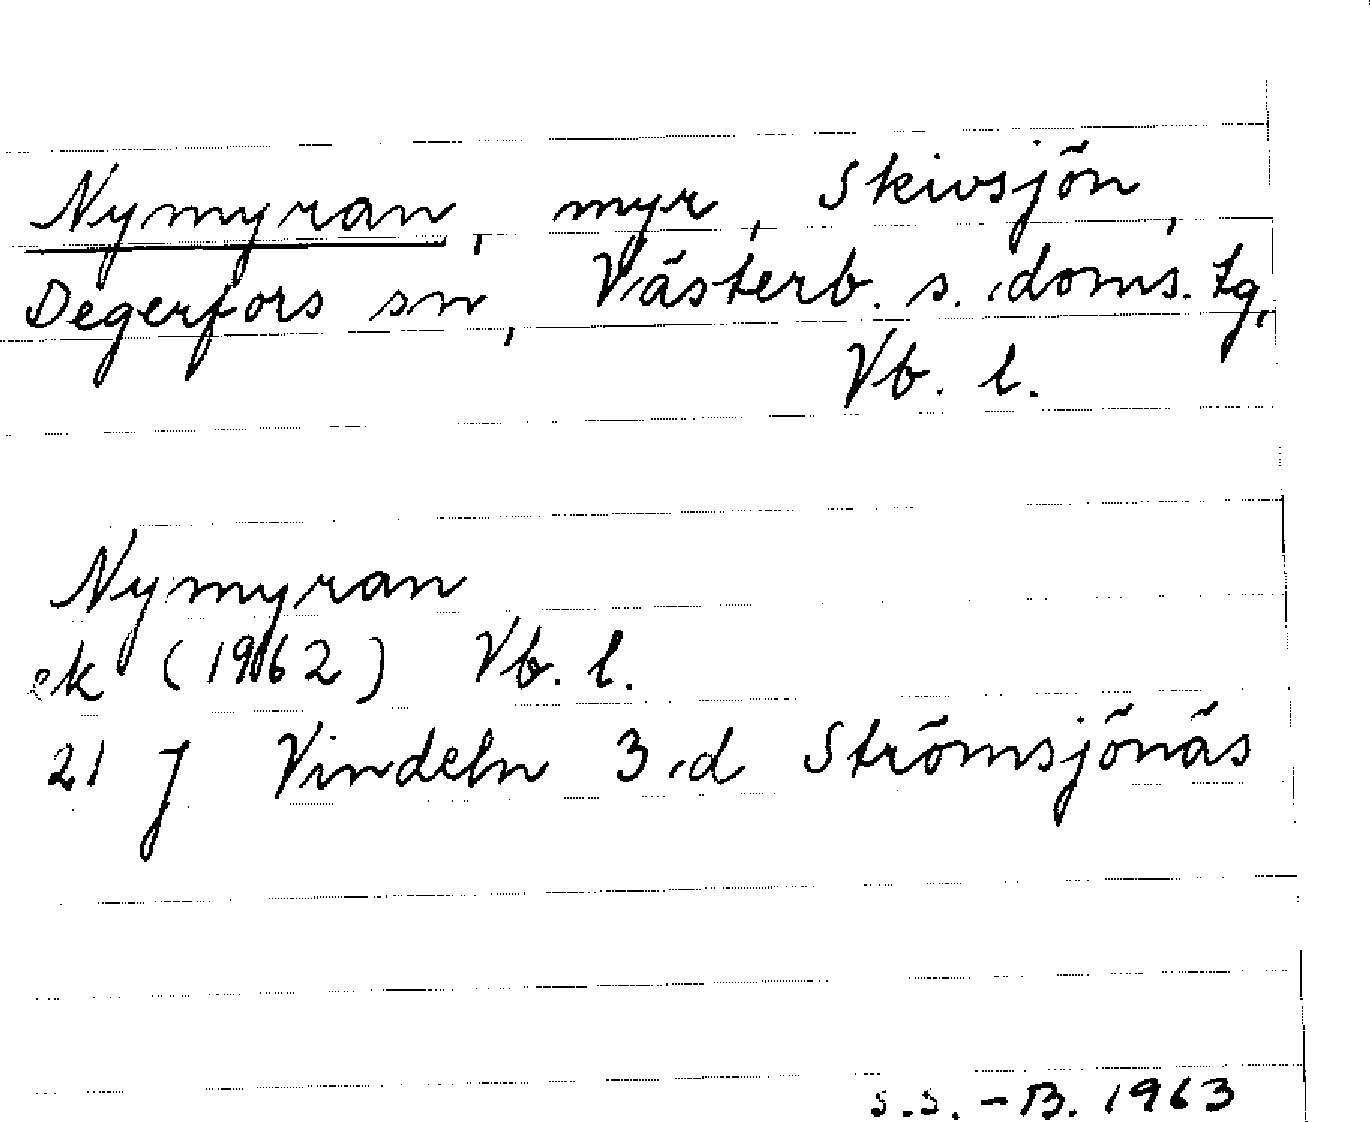 Nymyran, myr, Skivsjön,
Degerfors sn, Västerb. s. doms. tg,
Vb. l.
Nymyran
ek (1962) Vb. l.
21 J Vindeln 3 d Strömsjönäs
S.S. - B. 1963